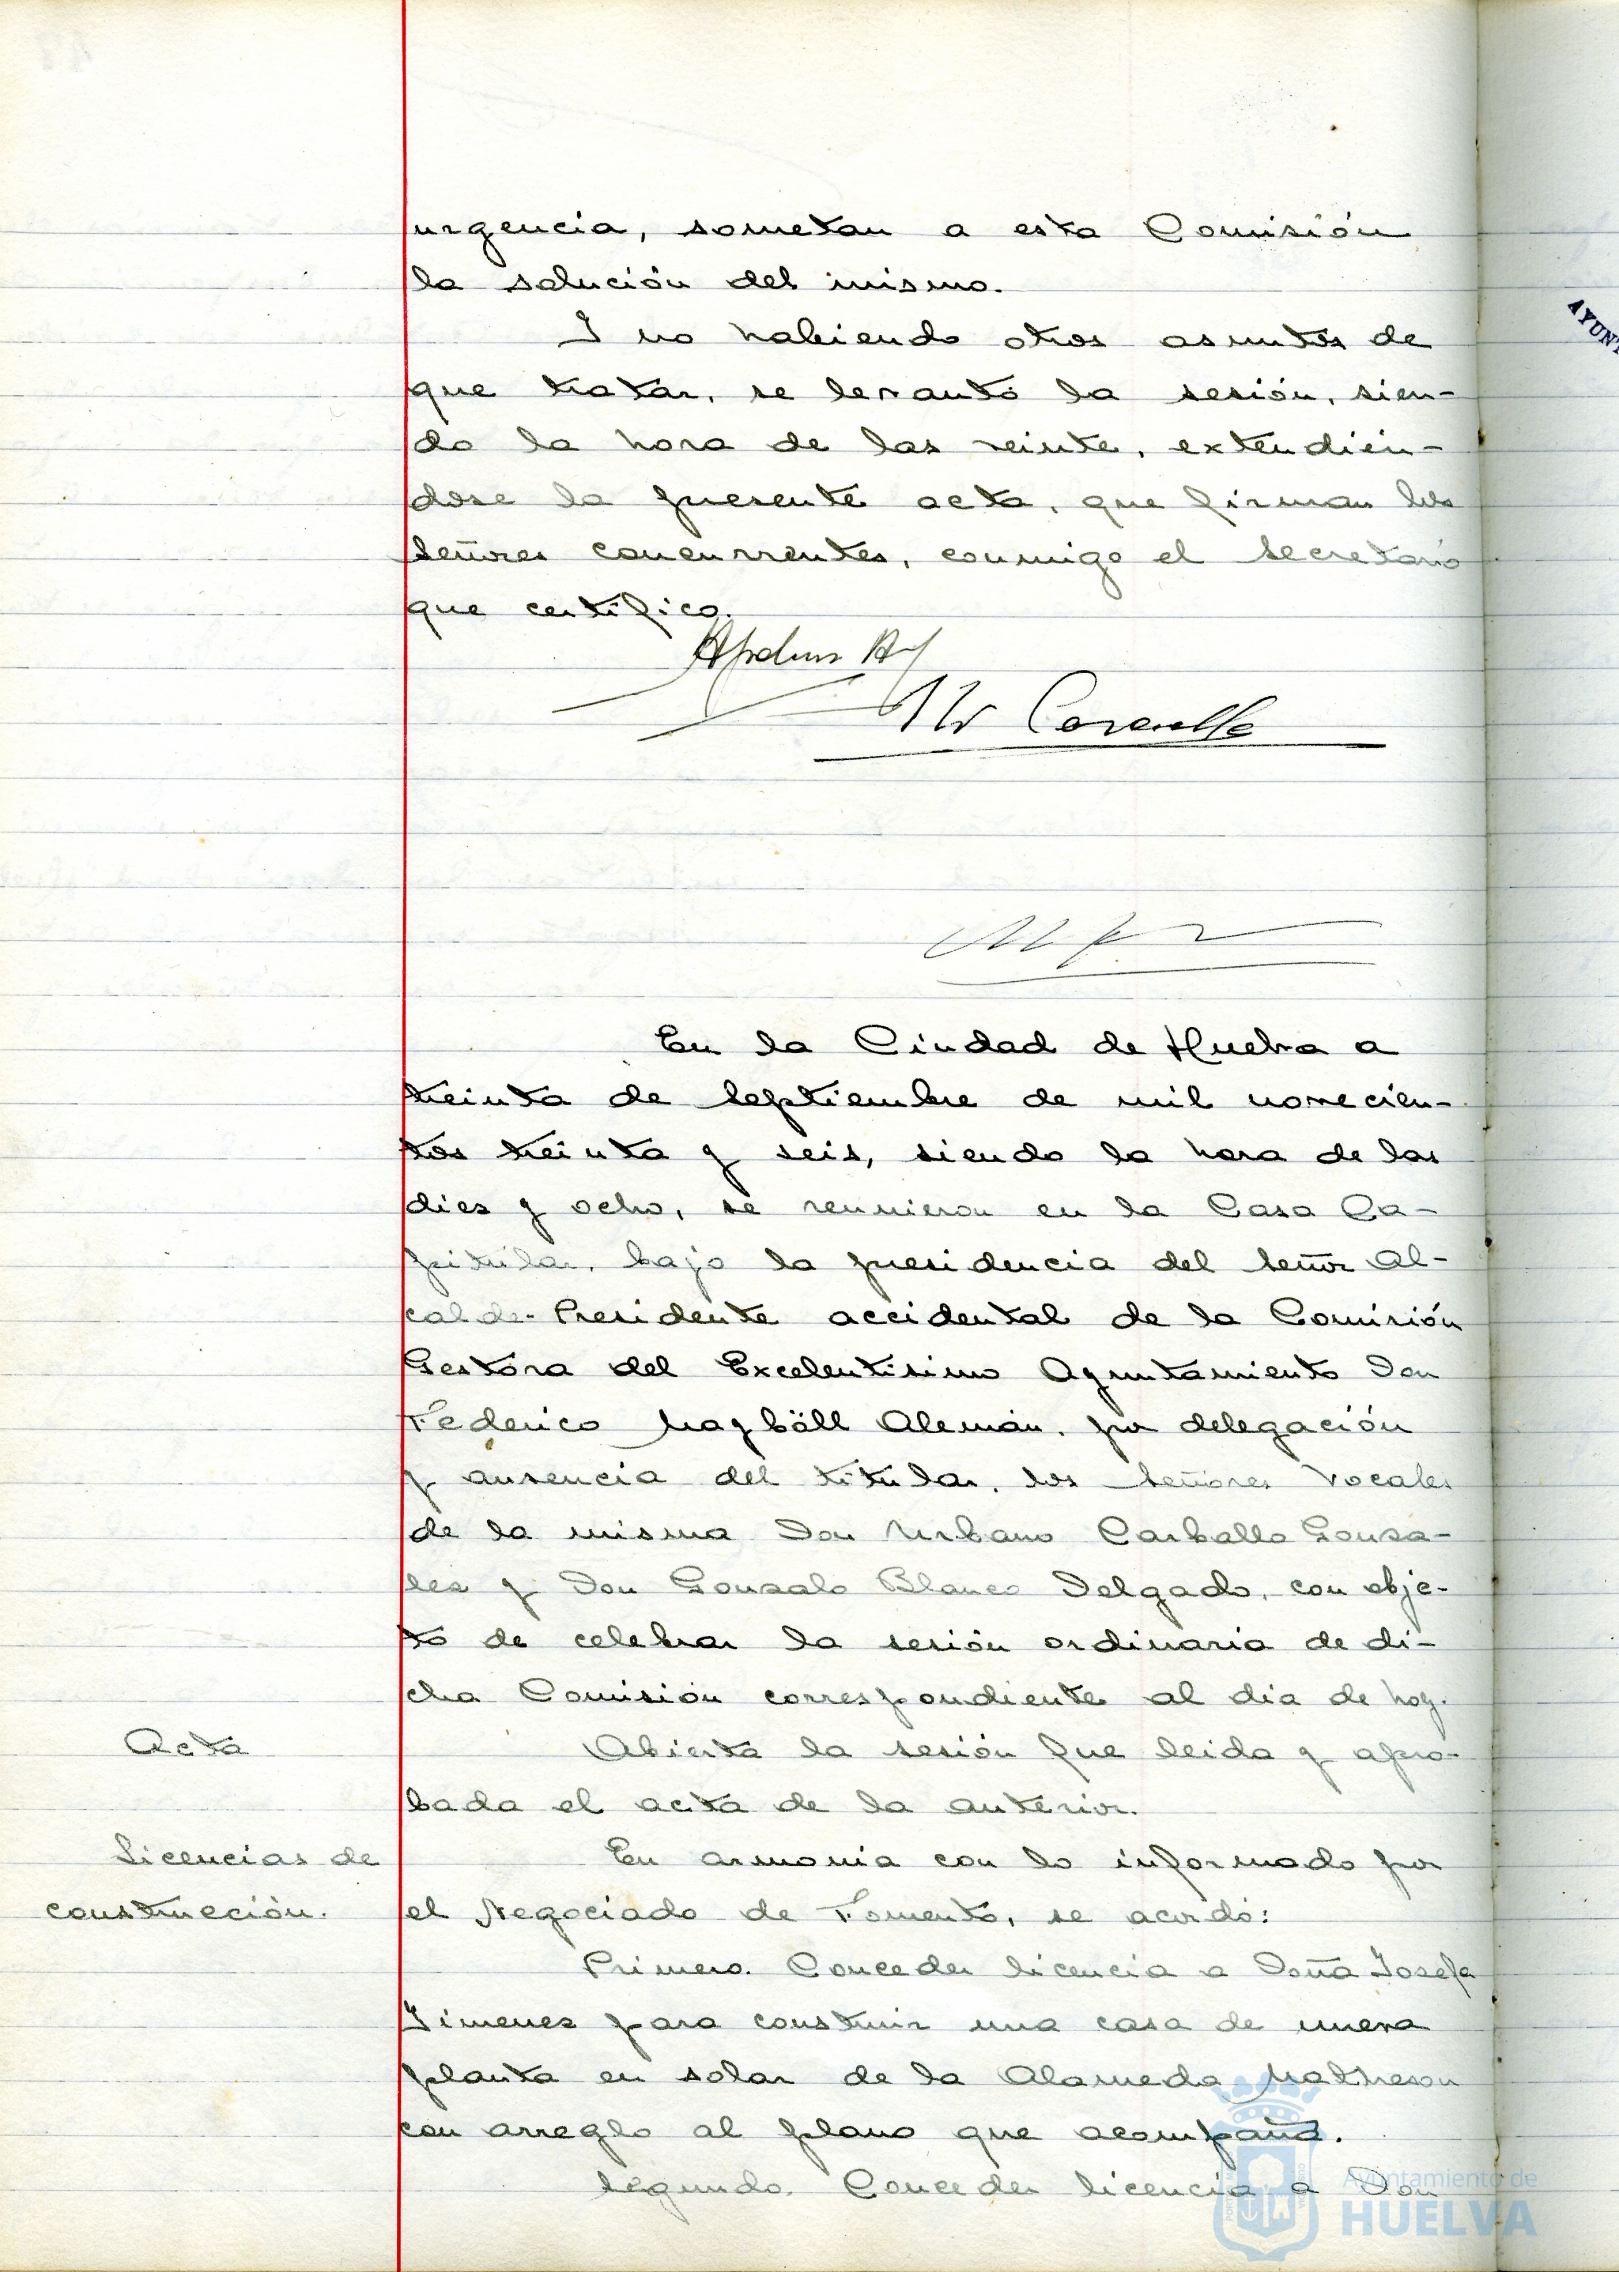 urgencia, sometan a esta Comisión
la solución del mismo.
Y no habiendo otros asuntos de
que tratar, se levantó la sesión, sien-
do la hora de las veinte, extendién-
dose la presente acta, que firman los
Señores concurrentes, conmigo el Secretario
que certifico.
En la Ciudad de Huelva a
treinta de Septiembre de mil novecien-
tos treinta y seis, siendo la hora de las
dies y ocho, se reunieron en la Casa Ca-
pitular, bajo la presidencia del Señor Al-
calde-Presidente accidental de la Comisión
Gestora del Excelentísimo Ayuntamiento Don
Federico Mayböll Alemán, por delegación
y ausencia del titular, los Señores Vocales
de la misma Don Urbano Carballo Gonsa-
les y Don Gonsalo Blanco Delgado, con obje-
to de celebrar la sesión ordinaria de di-
cha Comisión correspondiente al día de hoy.
Acta
Abierta la sesión fue leida y apro-
bada el acta de la anterior.
Licencias de
construcción.
En armonia con lo informado por
el Negociado de Fomento, se acordó:
Primero. Conceder licencia a Doña Josefa
Jimenes para construir una casa de nueva
planta en solar de la Alameda Matheson
con arreglo al plano que acompaña.
Segundo. Conceder licencia a Don
Ayuntamiento de
HUELVA